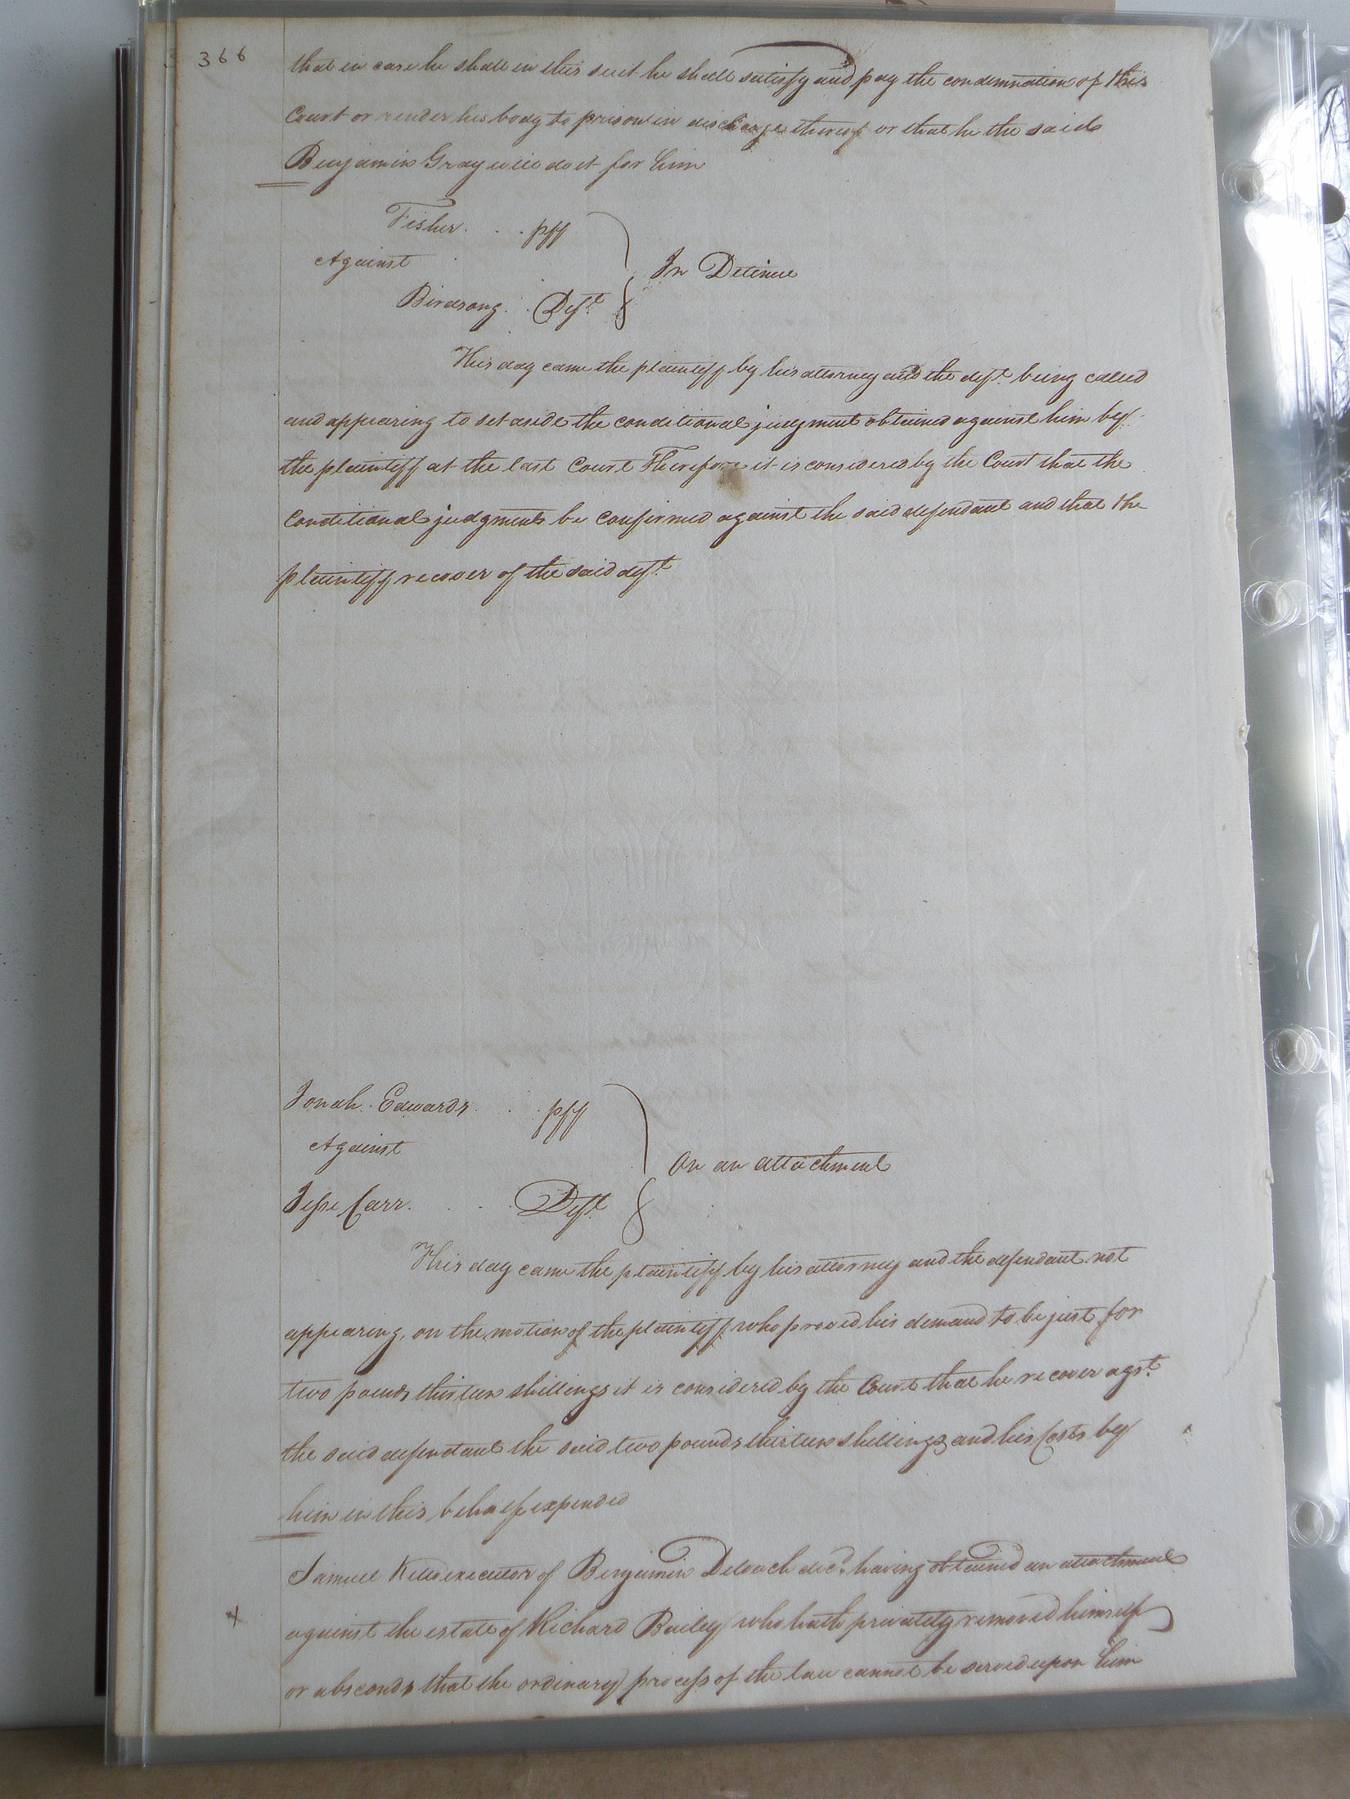 366
that in case he shall in this suit he shall satisfy and pay the condemnation of this
Court or render his body to prison in discharge thereof or that he the said
Benjamin Gray will do it for him
Fisher . . plf
Against
Birdsong . . Deft
In Detinue
This day came the plaintiff by his attorney and the deft. being called
and appearing to set aside the conditional judgment obtained against him by
the plaintiff at the last Court Therefore it is considered by the Court that the
Conditional judgment be confirmed against the said defendant and that the
plaintiff recover of the said deft.
Jonah Edwards . . plf
Against
Jesse Carr . . . Deft
On an attachment
This day came the plaintiff by his attorney and the defendant not
appearing, on the motion of the plaintiff who proved his demand to be just for
two pounds thirteen shillings it is considered by the Court that he recover agst.
the said defendant the said two pounds thirteen shillings and his Costs by
him in this behalf expended
Samuel executor of Benjamin Deloach decd. having obtained an attachment
x against the estate of Richard Bailey who hath privately removed himself
or absconds that the ordinary process of the law cannot be served upon him